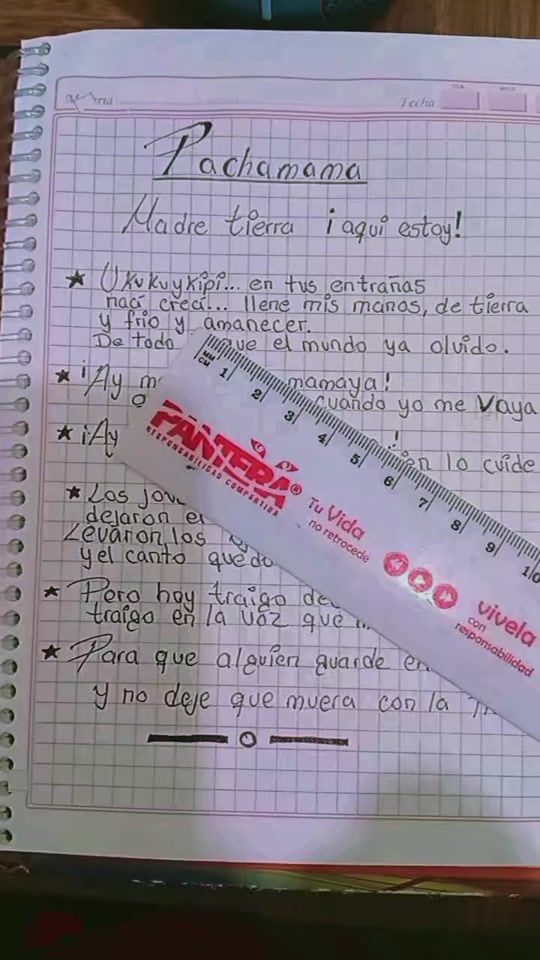 Fecha
DIA
MES
Pachamama
Madre tierra ¡aquí estoy!
★ Ukukuykipi... en tus entrañas
nací crecí... llene mis manos, de tierra
y frio y amanecer.
De todo que el mundo ya olvido.
★ ¡Ay mamaya!
cuando yo me Vaya
★ ¡Ay !
lo cuide
★ Los
dejaron
Levaron los
y el canto que
★ Pero hoy traigo
traigo en la voz que
★ Para que alguien guarde
y no deje que muera con la
MM
CM 1 2 3 4 5 6 7 8 9 10
PANTERA®
RESPONSABILIDAD COMPARTIDA
Tu Vida
no retrocede
vívela
con
responsabilidad